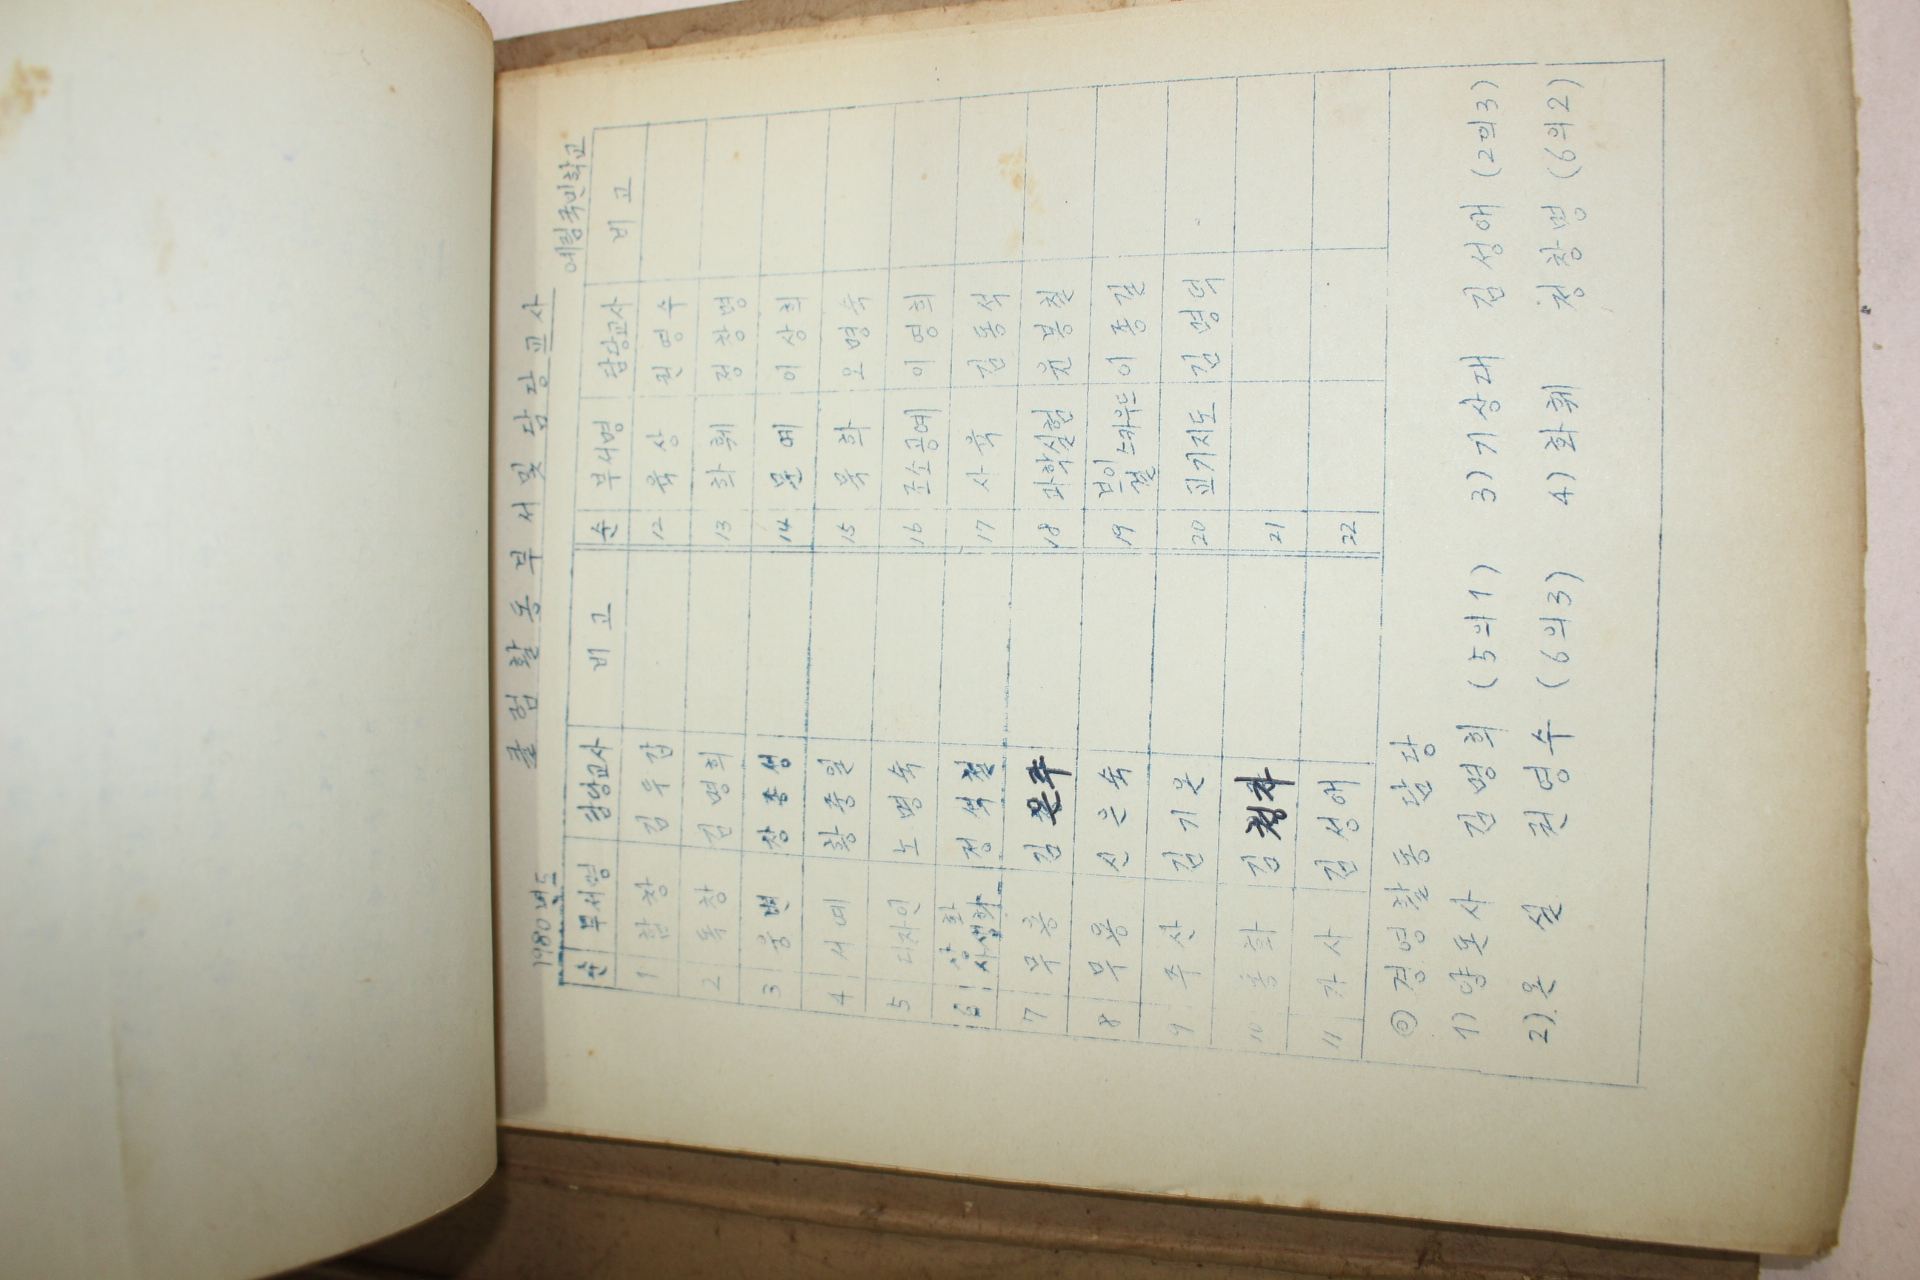 1980년도
클럽활동부서및담당교사
예림국민학교
순 부서명 담당교사 비고 순 부서명 담당교사 비고
1 합창 김우갑 12 육상 권영수
2 독창 김명희 13 화훼 정창명
3 웅변 장종성 14 문예 이상희
4 서예 황종일 15 목화 오명숙
5 디자인 노명숙 16 조소공예 이영희
6 상화 사생화 정석철 17 사육 김동석
7 무용 김은주 18 과학실험 천봉철
8 무용 신은숙 19 보이 걸 스카우드 이종길
9 주산 김기운 20 교기지도 김명덕
10 동화 김 21
11 가사 김성애 22
◎ 경영활동 담당
1) 양돈사 김명희 (5의1) 3) 기상대 김성애 (2의3)
2) 온실 권영수 (6의3) 4) 화훼 정창명 (6의2)